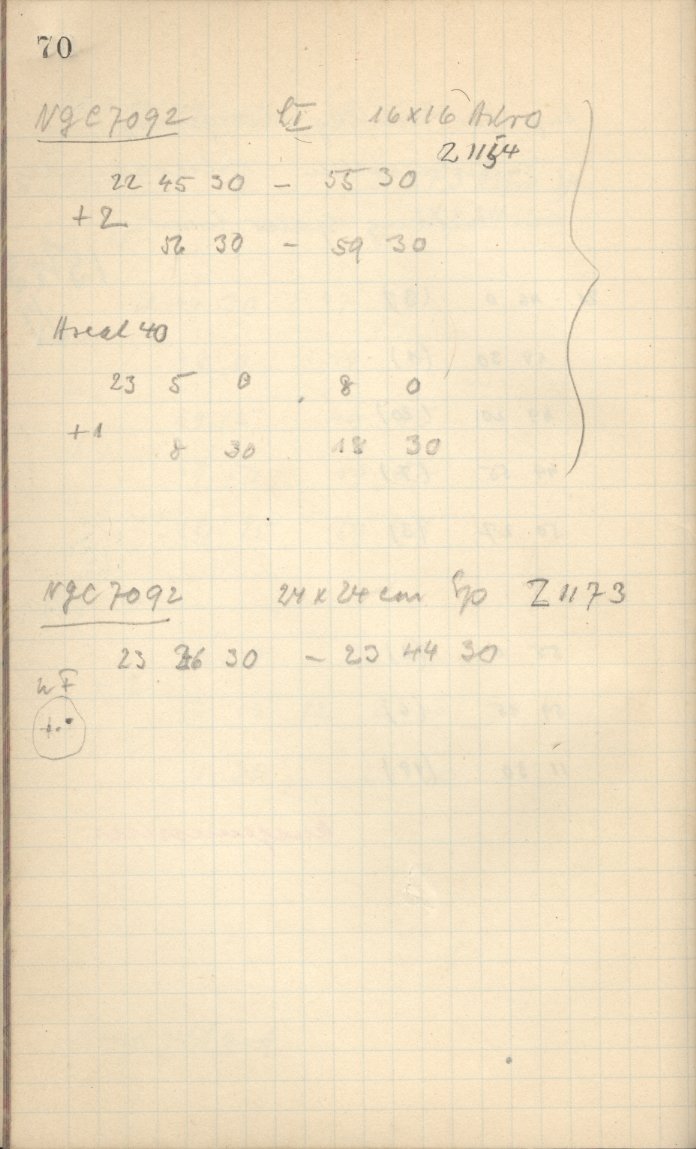 70
NGC 7092 16x16 Astro
22 45 30 – 55 30
+2
56 30 – 59 30
Areal 40
23 5 0 . 8 0
+1
8 30 18 30
NGC 7092 24x24 cm Z 1173
23 26 30 – 23 44 30